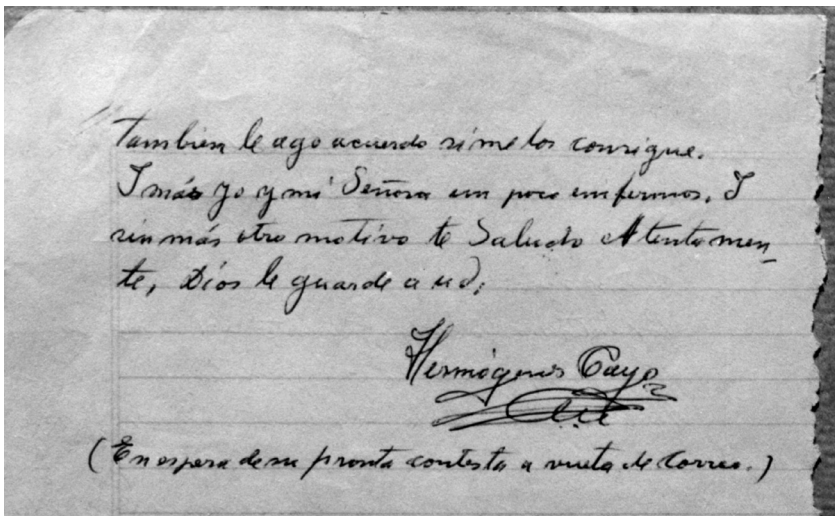 Tambien le ago acuerdo si me los consigue.
I más yo y mi Señora un poco enfermos. I
sin más otro motivo te Saludo Atentamen-
te, Dios le guarde a ud,
Hermógenes Cayo
(En espera de su pronta contesta a vuelta de Correo.)